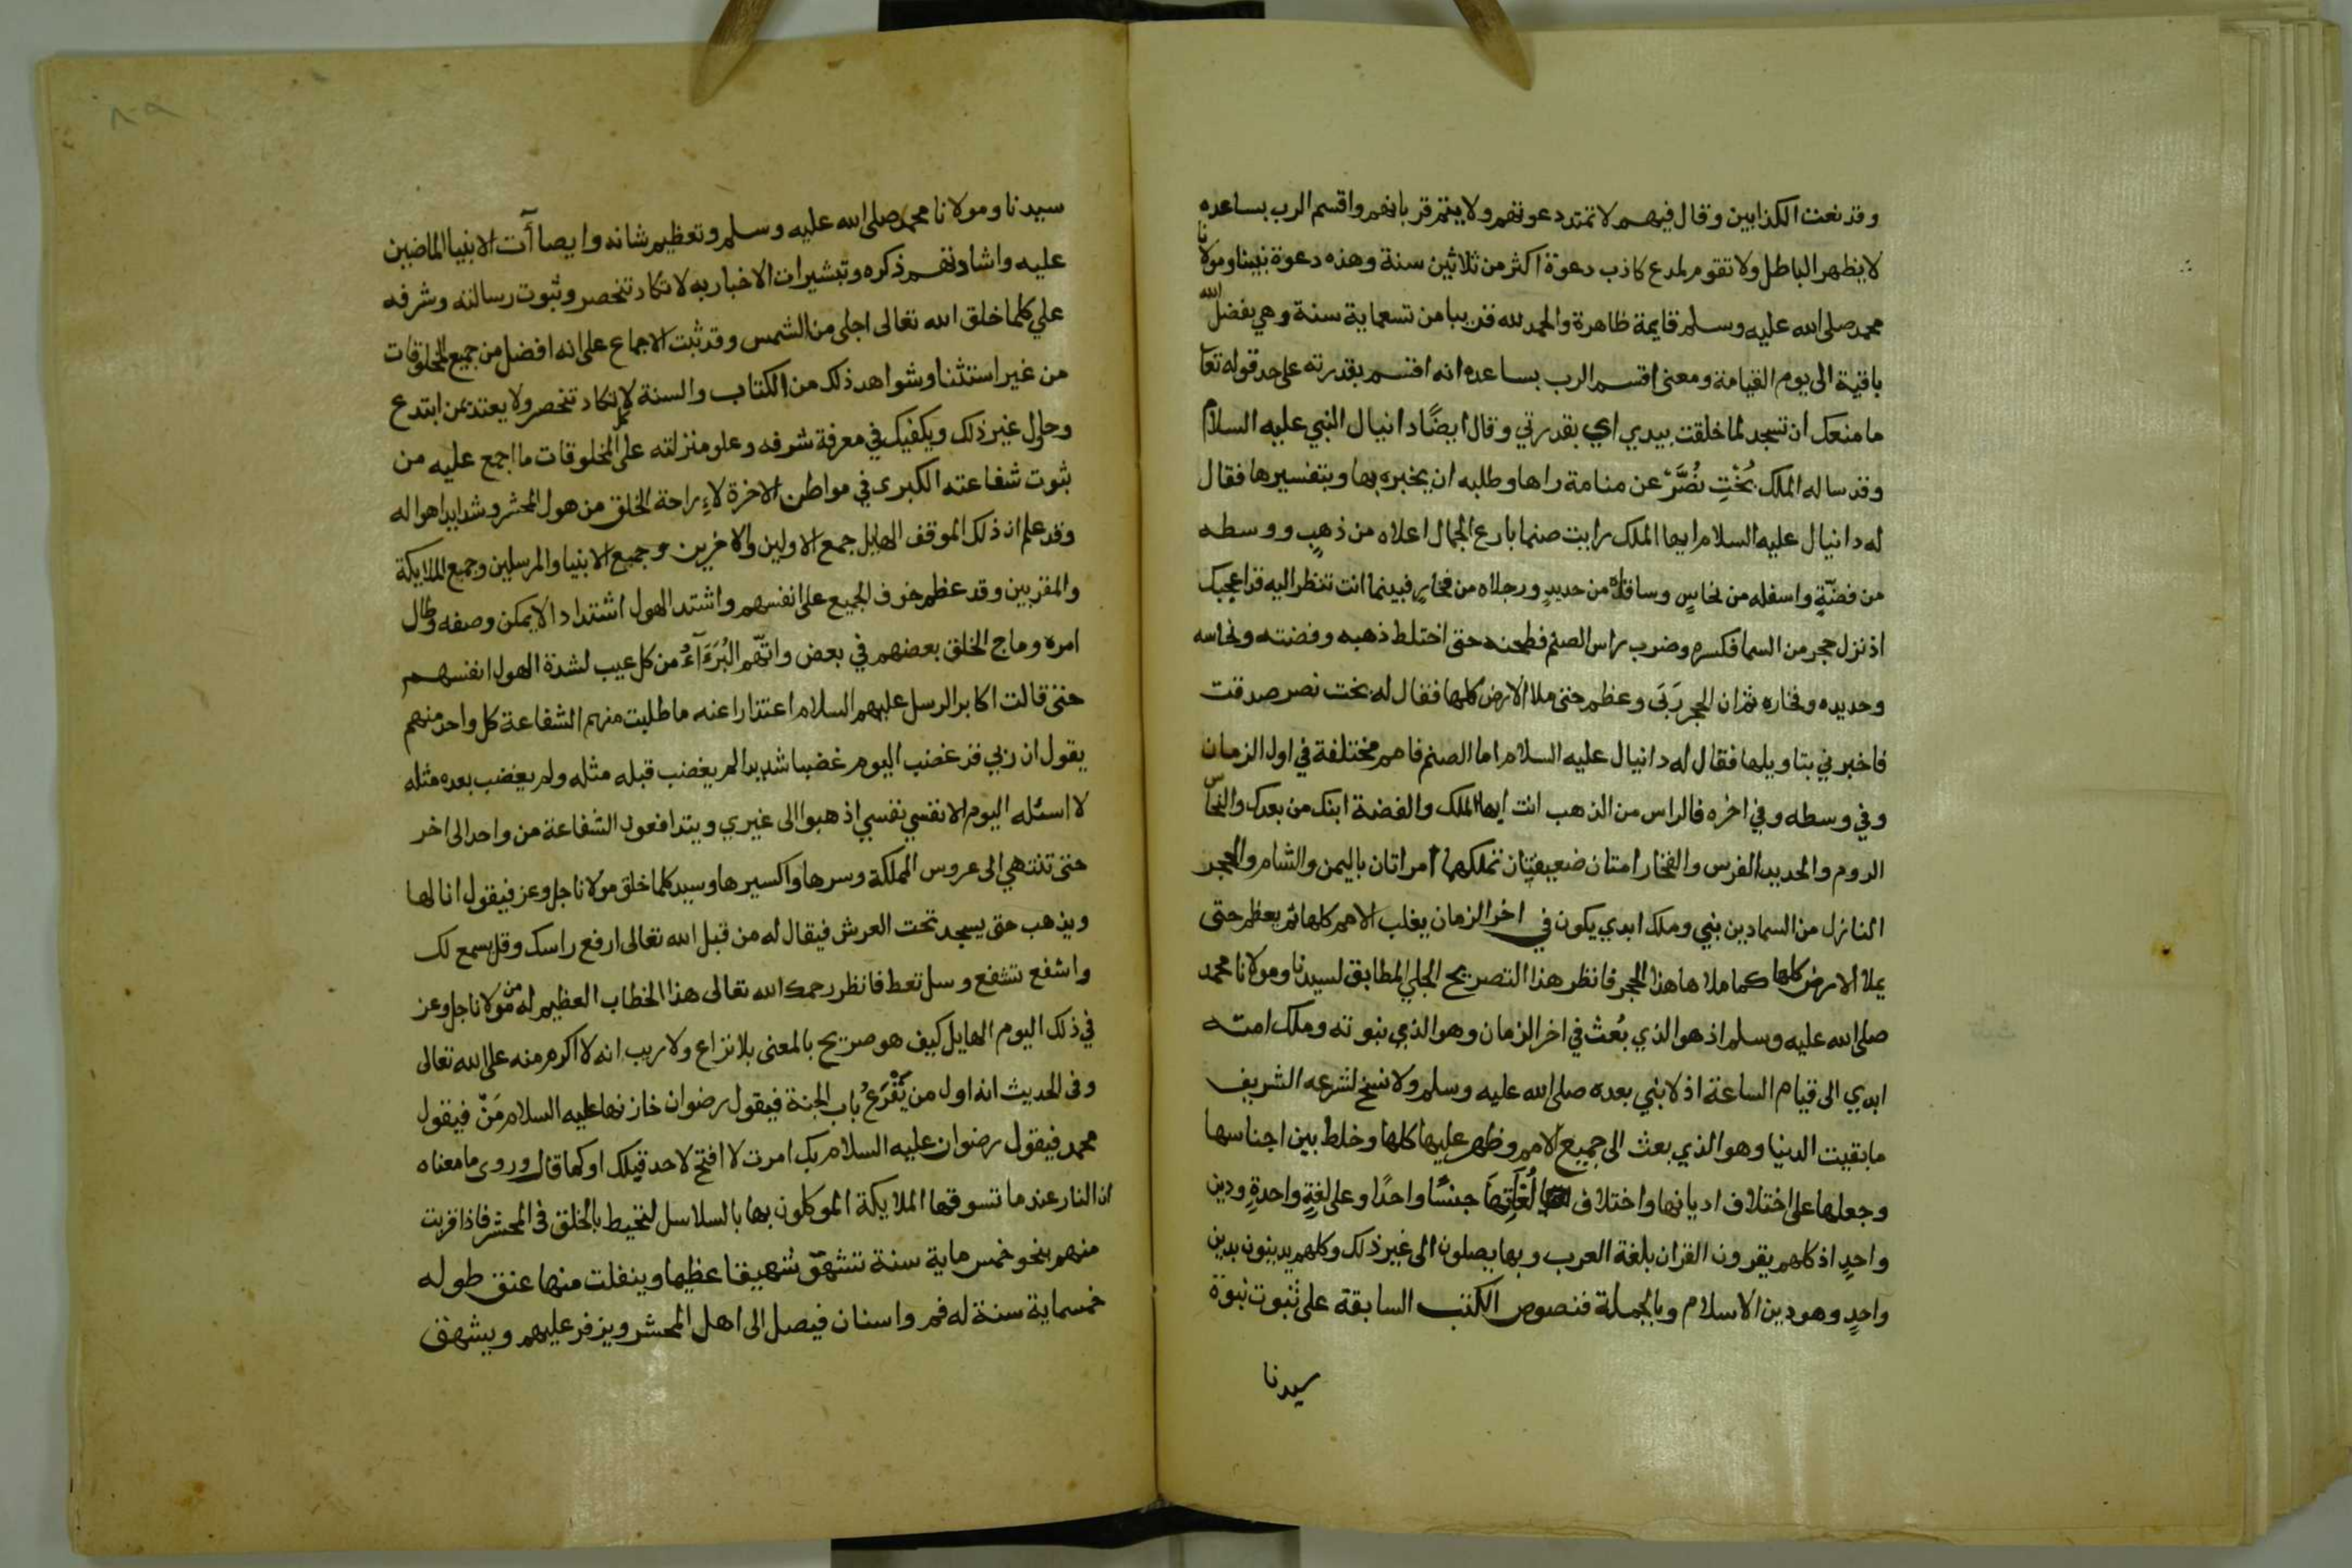 وقد نعت الكذابين وقال فيهم لا تمتد دعوتهم ولا يتم قربانهم واقسم الرب بساعده
لا يظهر الباطل ولا تقوم لمدع كاذب دعوة اكثر من ثلاثين سنة وهذه دعوة نبينا ومولانا
محمد صلى الله عليه وسلم قايمة ظاهرة والحمد لله قريبا من تسعماية سنة وهي بفضل الله
باقية الى يوم القيامة ومعنى اقسم الرب بساعده انه اقسم بقدرته على حد قوله تعا
ما منعك ان تسجد لما خلقت بيدي اي بقدرتي وقال ايضًا دانيال النبي عليه السلام
وقد ساله الملك بُخْتِ نُصَّرْ عن منامة راها وطلبه ان يخبره بها وبتفسيرها فقال
له دانيال عليه السلام ايها الملك رايت صنما بارع الجمال اعلاه من ذهبٍ ووسطه
من فضّةٍ واسفله من نحاسٍ وساقاه من حديدٍ ورجلاه من فخارٍ فبينما انت تنظر اليه قد اعجبك
اذ نزل حجر من السما فكسره وضرب راس الصنم فطحنه حتى اختلط ذهبه وفضته ونحاسه
وحديده وفخاره ثم ان الحجر رَبَى وعظم حتى ملا الارض كلها فقال له بخت نصر صدقت
فاخبرني بتاويلها فقال له دانيال عليه السلام اما الصنم فامم مختلفة في اول الزمان
وفي وسطه وفي اخره فالراس من الذهب انت ايها الملك والفضة ابنك من بعدك والنحاس
الروم والحديد الفرس والفخار امتان ضعيفتان تملكها امراتان باليمن والشام والحجر
النازل من السما دين نبي وملك ابدي يكون في اخر الزمان يغلب الامم كلها ثم يعظم حتى
يملا الارض كلها كما ملاها هذا الحجر فانظر هذا التصريح الجلي المطابق لسيدنا ومولانا محمد
صلى الله عليه وسلم اذ هو الذي بُعث في اخر الزمان وهو الذي نبوته وملك امته
ابدي الى قيام الساعة اذ لا نبي بعده صلى الله عليه وسلم ولا نسخ لشرعه الشريف
ما بقيت الدنيا وهو الذي بعث الى جميع الامم وظهر عليها كلها وخلط بين اجناسها
وجعلها على اختلاف اديانها واختلاف لُغَاتِهَا جنسًا واحدًا وعلى لغةٍ واحدةٍ ودين
واحدٍ اذ كلهم يقرون القران بلغة العرب وبها يصلون الى غير ذلك وكلهم يدينون بدين
واحدٍ وهو دين الاسلام وبالجملة فنصوص الكتب السابقة على ثبوت نبوة
سيدنا
سيدنا ومولانا محمد صلى الله عليه وسلم وتعظيم شانه وايصاآت الانبيا الماضين
عليه واشادتهم ذكره وتبشيرات الاخبار به لا تكاد تنحصر وثبوت رسالته وشرفه
علي كلما خلق الله تعالى اجلى من الشمس وقد ثبت الاجماع على انه افضل من جميع المخلوقات
من غير استثنا وشواهد ذلك من الكتاب والسنة لا تكاد تنحصر ولا يعتد بمن ابتدع
وحاول غير ذلك ويكفيك في معرفة شرفه وعلو منزلته على المخلوقات ما اجمع عليه من
ثبوت شفاعته الكبرى في مواطن الاخرة لاراحة الخلق من هول المحشر وشدايد اهواله
وقد علم ان ذلك الموقف الهايل جمع الاولين والاخرين وجميع الانبيا والمرسلين وجميع الملايكة
والمقربين وقد عظم خوف الجميع على انفسهم واشتد الهول اشتدادا لا يمكن وصفه وطال
امره وماج الخلق بعضهم في بعض واتّهم البُرَءَآءُ من كل عيب لشدة الهول انفسهم
حتى قالت اكابر الرسل عليهم السلام اعتذارا عنه ما طلبت منهم الشفاعة كل واحد منهم
يقول ان ربي قد غضب اليوم غضبا شديدا لم يغضب قبله مثله ولم يغضب بعده مثله
لا اسئله اليوم الا نفسي نفسي اذهبوا الى غيري ويتدافعون الشفاعة من واحد الى اخر
حتى تنتهي الى عروس المملكة وسرها واكسيرها وسيد كلما خلق مولانا جل وعز فيقول انا لها
ويذهب حتى يسجد تحت العرش فيقال له من قبل الله تعالى ارفع راسك وقل يسمع لك
واشفع تشفع وسل تعط فانظر رحمك الله تعالى هذا الخطاب العظيم له من مولانا جل وعز
في ذلك اليوم الهايل كيف هو صريح بالمعنى بلا نزاع ولا ريب انه لا اكرم منه على الله تعالى
وفى الحديث انه اول من يَقْرَعُ باب الجنة فيقول رضوان خازنها عليه السلام مَنْ فيقول
محمد فيقول رضوان عليه السلام بك امرت لا افتح لاحد قبلك او كما قال وروى ما معناه
ان النار عندما تسوقها الملايكة الموكلون بها بالسلاسل لتحيط بالخلق فى المحشر فاذا قربت
منهم بنحو خمس ماية سنة تشهق شهيقا عظيما وينفلت منها عنق طوله
خمسماية سنة له فم واسنان فيصل الى اهل المحشر ويزفر عليهم ويشهق